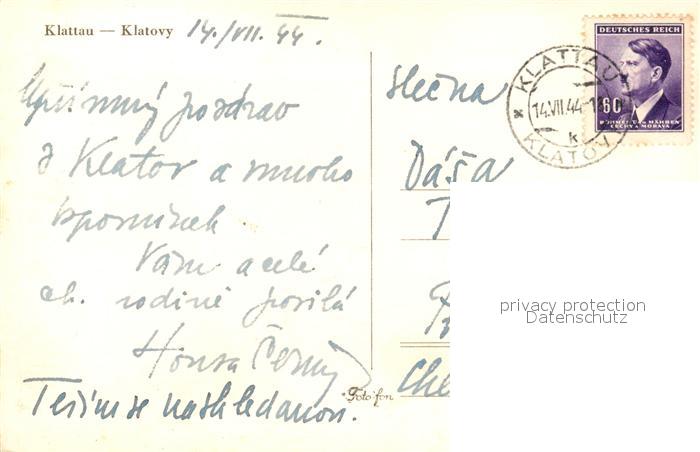 Klattau — Klatovy 14./VII. 44.
Upřímný pozdrav
z Klatov a mnoho
vzpomínek
Vám a celé
ct. rodině posílá
Honza Černý
Těším se nashledanou.
Foto-fon
slečna
Dáša
T
Che
DEUTSCHES REICH
60
BÖHMEN U. MÄHREN
ČECHY A MORAVA
* KLATTAU
14.VII.44-1
k
KLATOVY
privacy protection
Datenschutz